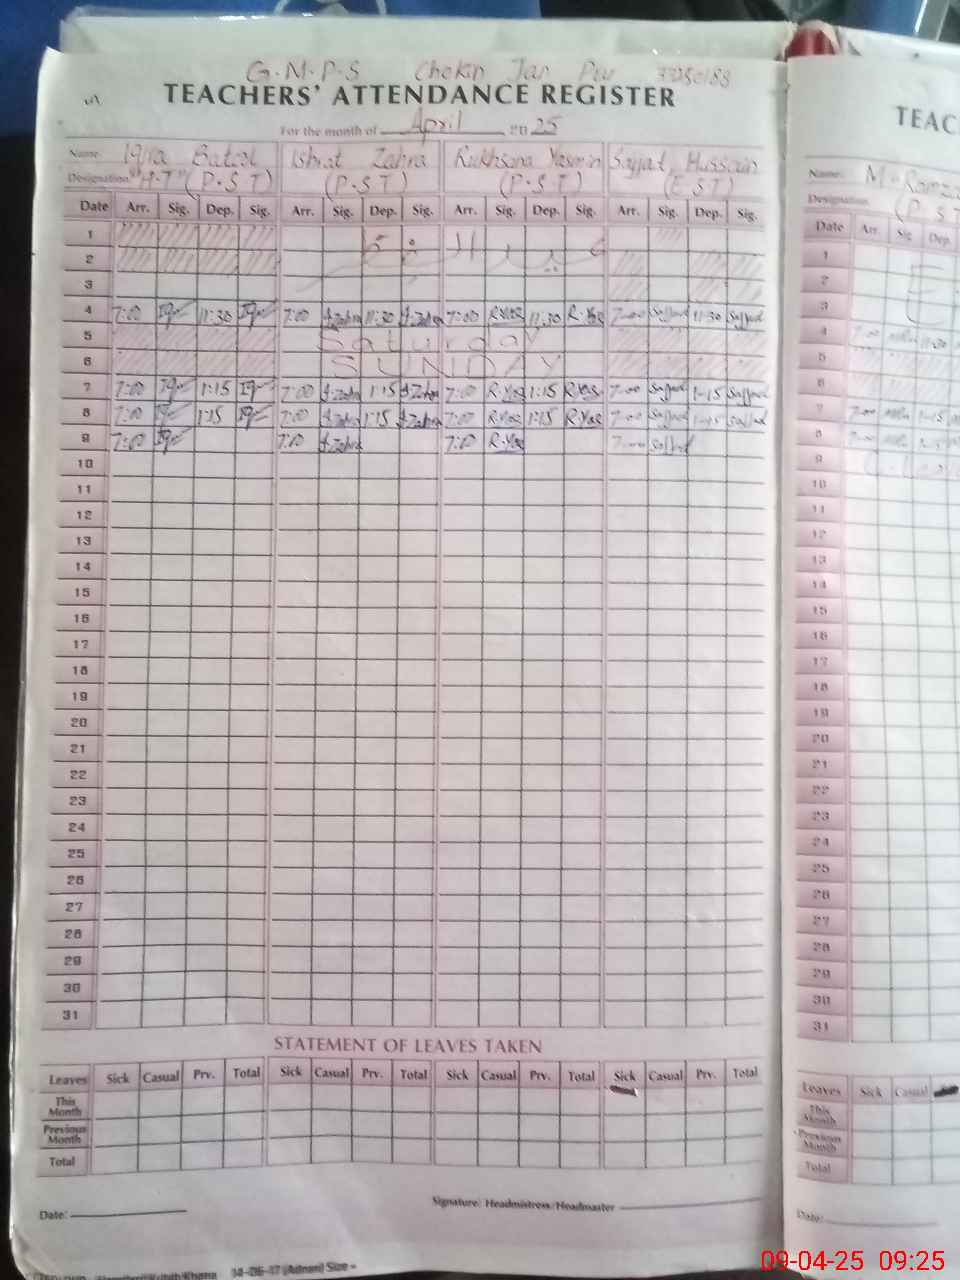 G.M.P.S Chokin Jan Pur
TEACHERS' ATTENDANCE REGISTER
For the month of April 2025
Name: Iqra Batool Ishrat Zahra Rukhsana Yasmin Sajjad Hussain
Designation "H-T" (P.S.T) (P.S.T) (P.S.T) (E.S.T)
Date Arr. Sig. Dep. Sig. Arr. Sig. Dep. Sig. Arr. Sig. Dep. Sig. Arr. Sig. Dep. Sig.
1
2
3
4 7:00 11:30 7:00 I.Zahra 11:30 I.Zahra 7:00 R.Yas 11:30 R.Yas 7:00 Sajjad 11:30 Sajjad
5 Saturday
6 SUNDAY
7 7:00 1:15 7:00 I.Zahra 1:15 I.Zahra 7:00 R.Yas 1:15 R.Yas 7:00 Sajjad 1:15 Sajjad
8 7:00 1:15 7:00 I.Zahra 1:15 I.Zahra 7:00 R.Yas 1:15 R.Yas 7:00 Sajjad 1:15 Sajjad
9 7:00 7:00 I.Zahra 7:00 R.Yas 7:00 Sajjad
10
11
12
13
14
15
16
17
18
19
20
21
22
23
24
25
26
27
28
29
30
31
STATEMENT OF LEAVES TAKEN
Leaves Sick Casual Prv. Total Sick Casual Prv. Total Sick Casual Prv. Total Sick Casual Prv. Total
This Month
Previous Month
Total
Date: Signature: Headmistress/Headmaster
14-06-17 (Adnan) Size =
TEAC
Name: M. Ramza
Designation (P.ST
Date Arr. Sig. Dep.
1
2
3
4 7:00 11:30
5
6
7 7:00 1:15
8 7:00 1:15
9
10
11
12
13
14
15
16
17
18
19
20
21
22
23
24
25
26
27
28
29
30
31
Leaves Sick Casual
This Month
Previous Month
Total
Date:
09-04-25 09:25